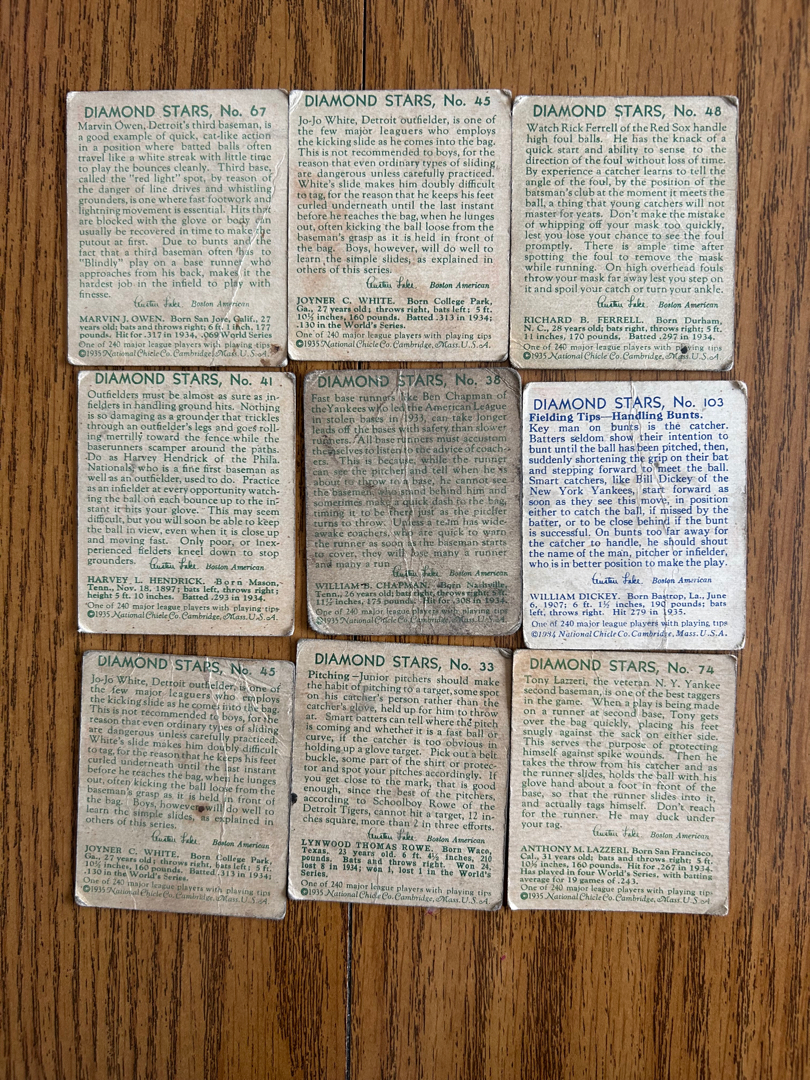 DIAMOND STARS, No. 67
Marvin Owen, Detroit's third baseman, is
a good example of quick, cat-like action
in a position where batted balls often
travel like a white streak with little time
to play the bounces cleanly. Third base,
called the "red light" spot, by reason of
the danger of line drives and whistling
grounders, is one where fast footwork and
lightning movement is essential. Hits that
are blocked with the glove or body can
usually be recovered in time to make a
putout at first. Due to bunts and the
fact that a third baseman often has to
"Blindly" play on a base runner who
approaches from his back, makes it the
hardest job in the infield to play with
finesse.
Austen Lake Boston American
MARVIN J. OWEN. Born San Jore, Galif., 27
years old; bats and throws right; 6 ft. 1 inch, 177
pounds. Hit for .317 in 1934, .069 World Series
One of 240 major league players with playing tips
©1935 National Chicle Co. Cambridge, Mass. U.S.A.
DIAMOND STARS, No. 45
Jo-Jo White, Detroit outfielder, is one of
the few major leaguers who employs
the kicking slide as he comes into the bag.
This is not recommended to boys, for the
reason that even ordinary types of sliding
are dangerous unless carefully practiced.
White's slide makes him doubly difficult
to tag, for the reason that he keeps his feet
curled underneath until the last instant
before he reaches the bag, when he lunges
out, often kicking the ball loose from the
baseman's grasp as it is held in front of
the bag. Boys, however, will do well to
learn the simple slides, as explained in
others of this series.
Austen Lake Boston American
JOYNER C. WHITE. Born College Park,
Ga., 27 years old; throws right, bats left; 5 ft.
10½ inches, 160 pounds. Batted .313 in 1934;
.130 in the World's Series.
One of 240 major league players with playing tips
©1935 National Chicle Co. Cambridge, Mass. U.S.A.
DIAMOND STARS, No. 48
Watch Rick Ferrell of the Red Sox handle
high foul balls. He has the knack of a
quick start and ability to sense to the
direction of the foul without loss of time.
By experience a catcher learns to tell the
angle of the foul, by the position of the
batsman's club at the moment it meets the
ball, a thing that young catchers will not
master for years. Don't make the mistake
of whipping off your mask too quickly,
lest you lose your chance to see the foul
promptly. There is ample time after
spotting the foul to remove the mask
while running. On high overhead fouls
throw your mask far away lest you step on
it and spoil your catch or turn your ankle.
Austen Lake Boston American
RICHARD B. FERRELL. Born Durham,
N. C., 28 years old; bats right, throws right; 5 ft.
11 inches, 170 pounds. Batted .297 in 1934.
One of 240 major league players with playing tips
©1935 National Chicle Co. Cambridge, Mass. U.S.A.
DIAMOND STARS, No. 41
Outfielders must be almost as sure as in-
fielders in handling ground hits. Nothing
is so damaging as a grounder that trickles
through an outfielder's legs and goes roll-
ing merrily toward the fence while the
baserunners scamper around the paths.
Do as Harvey Hendrick of the Phila.
Nationals who is a fine first baseman as
well as an outfielder, used to do. Practice
as an infielder at every opportunity watch-
ing the ball on each bounce up to the in-
stant it hits your glove. This may seem
difficult, but you will soon be able to keep
the ball in view, even when it is close up
and moving fast. Only poor, or inex-
perienced fielders kneel down to stop
grounders.
Austen Lake Boston American
HARVEY L. HENDRICK. Born Mason,
Tenn., Nov. 18, 1897; bats left, throws right;
height 5 ft. 10 inches. Batted .293 in 1934.
One of 240 major league players with playing tips
©1935 National Chicle Co. Cambridge, Mass. U.S.A.
DIAMOND STARS, No. 38
Fast base runners like Ben Chapman of
the Yankees who led the American League
in stolen bases in 1933, can take longer
leads off the bases with safety than slower
runners. All base runners must accustom
themselves to listen to the advice of coach-
ers. This is because, while the runner
can see the pitcher and tell when he is
about to throw to a base, he cannot see
the baseman who stand behind him and
sometimes make a quick dash to the bag,
timing it to be there just as the pitcher
turns to throw. Unless a team has wide-
awake coachers, who are quick to yarn
the runner as soon as the baseman starts
to cover, they will lose many a runner
and many a run
Austen Lake Boston American
WILLIAM B. CHAPMAN. Born Nashville,
Tenn., 26 years old; bats right, throws right; 5 ft.
11½ inches, 175 pounds. Hit for .308 in 1934.
One of 240 major league players with playing tips
©1935 National Chicle Co. Cambridge, Mass. U.S.A.
DIAMOND STARS, No. 103
Fielding Tips—Handling Bunts.
Key man on bunts is the catcher.
Batters seldom show their intention to
bunt until the ball has been pitched, then,
suddenly shortening the grip on their bat
and stepping forward to meet the ball.
Smart catchers, like Bill Dickey of the
New York Yankees, start forward as
soon as they see this move, in position
either to catch the ball, if missed by the
batter, or to be close behind if the bunt
is successful. On bunts too far away for
the catcher to handle, he should shout
the name of the man, pitcher or infielder,
who is in better position to make the play.
Austen Lake Boston American
WILLIAM DICKEY. Born Bastrop, La., June
6, 1907; 6 ft. 1½ inches, 190 pounds; bats
left, throws right. Hit 279 in 1935.
One of 240 major league players with playing tips
©1934 National Chicle Co. Cambridge, Mass. U.S.A.
DIAMOND STARS, No. 45
Jo-Jo White, Detroit outfielder, is one of
the few major leaguers who employs
the kicking slide as he comes into the bag.
This is not recommended to boys, for the
reason that even ordinary types of sliding
are dangerous unless carefully practiced.
White's slide makes him doubly difficult
to tag, for the reason that he keeps his feet
curled underneath until the last instant
before he reaches the bag, when he lunges
out, often kicking the ball loose from the
baseman's grasp as it is held in front of
the bag. Boys, however, will do well to
learn the simple slides, as explained in
others of this series.
Austen Lake Boston American
JOYNER C. WHITE. Born College Park,
Ga., 27 years old; throws right, bats left; 5 ft.
10½ inches, 160 pounds. Batted .313 in 1934;
.130 in the World's Series.
One of 240 major league players with playing tips
©1935 National Chicle Co. Cambridge, Mass. U.S.A.
DIAMOND STARS, No. 33
Pitching—Junior pitchers should make
the habit of pitching to a target, some spot
on his catcher's person rather than the
catcher's glove, held up for him to throw
at. Smart batters can tell where the pitch
is coming and whether it is a fast ball or
curve, if the catcher is too obvious in
holding up a glove target. Pick out a belt
buckle, some part of the shirt or protec-
tor and spot your pitches accordingly. If
you get close to the mark, that is good
enough, since the best of the pitchers,
according to Schoolboy Rowe of the
Detroit Tigers, cannot hit a target, 12 in-
ches square, more than 2 in three efforts.
Austen Lake Boston American
LYNWOOD THOMAS ROWE. Born Waco,
Texas. 23 years old. 6 ft. 4½ inches, 210
pounds. Bats and throws right. Won 24,
lost 8 in 1934; won 1, lost 1 in the World's
Series.
One of 240 major league players with playing tips
©1935 National Chicle Co. Cambridge, Mass. U.S.A.
DIAMOND STARS, No. 74
Tony Lazzeri, the veteran N. Y. Yankee
second baseman, is one of the best taggers
in the game. When a play is being made
on a runner at second base, Tony gets
over the bag quickly, placing his feet
snugly against the sack on either side.
This serves the purpose of protecting
himself against spike wounds. Then he
takes the throw from his catcher and as
the runner slides, holds the ball with his
glove hand about a foot in front of the
base, so that the runner slides into it,
and actually tags himself. Don't reach
for the runner. He may duck under
your tag.
Austen Lake Boston American
ANTHONY M. LAZZERI. Born San Francisco,
Cal., 31 years old; bats and throws right; 5 ft.
10½ inches, 160 pounds. Hit for .267 in 1934.
Has played in four World's Series, with batting
average for 19 games of .243.
One of 240 major league players with playing tips
©1935 National Chicle Co. Cambridge, Mass. U.S.A.